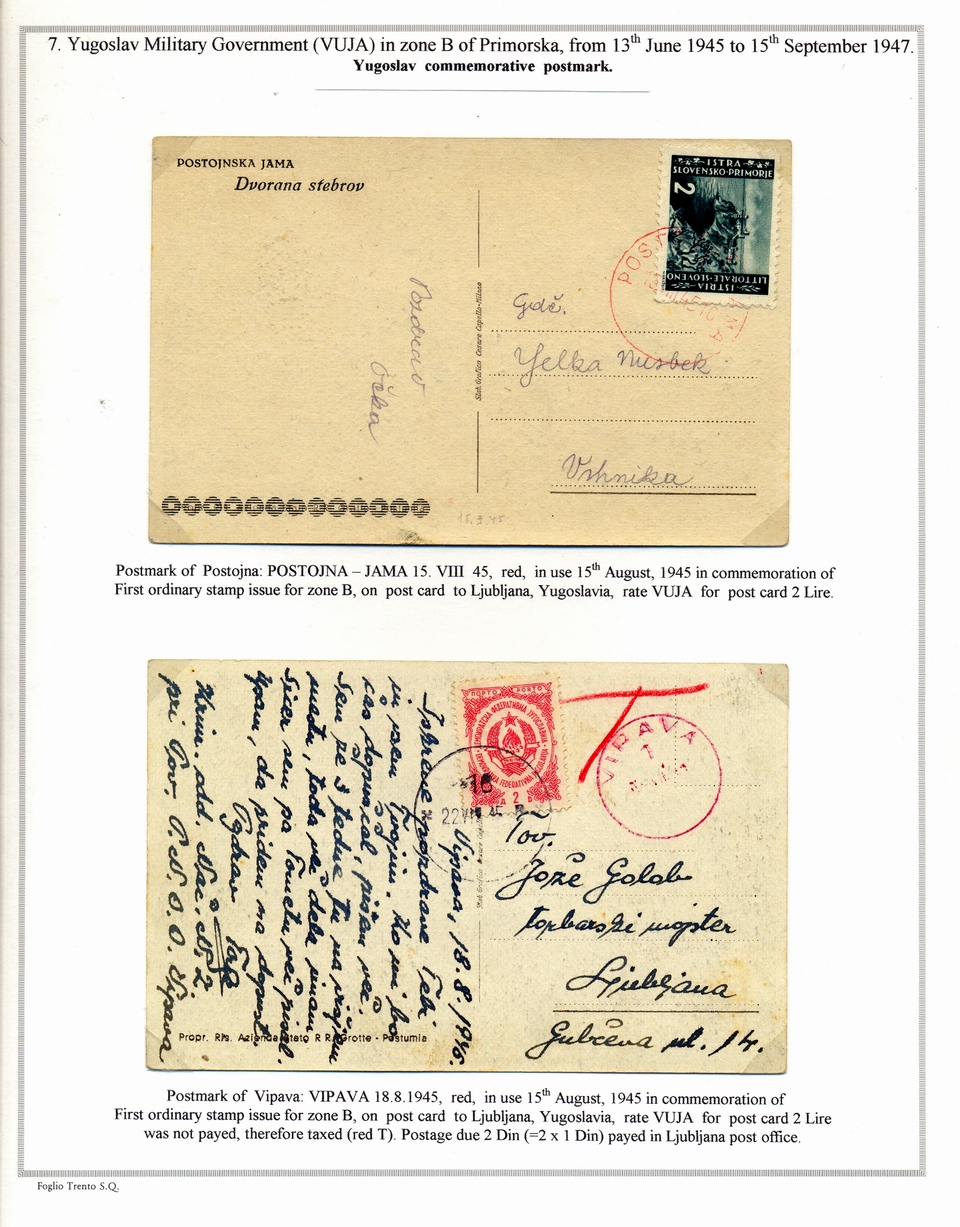 7. Yugoslav Military Government (VUJA) in zone B of Primorska, from 13th June 1945 to 15th September 1947.
Yugoslav commemorative postmark.
POSTOJNSKA JAMA
Dvorana stebrov
ISTRA
SLOVENSKO-PRIMORJE
2
ISTRIA
LITTORALE-SLOVENO
Pozdrav
Očka
Stab. Grafico Cesare Capello-Milano
Gdč.
Yelka
Vrhnika
15.9.45
Postmark of Postojna: POSTOJNA – JAMA 15. VIII 45, red, in use 15th August, 1945 in commemoration of
First ordinary stamp issue for zone B, on post card to Ljubljana, Yugoslavia, rate VUJA for post card 2 Lire.
ПОРТО PORTO
2
22 VIII 45
T
VIPAVA
1
Vipava, 18.8.1945.
Iskrene pozdrave Tebi
in vsem Tvojim. Ko mi bo
čas dopuščal, pišem več.
Sem že 3 tedne tu na
mestu, toda več dela
Sicer sem pa Tončtu več pisal.
da pridem na dopust.
Pozdrav
Tov.
Jože Golob
torbarski mojster
Ljubljana
Gubčeva ul. 14.
Propr. Ris. Azienda Stato R R. Grotte - Postumia
Postmark of Vipava: VIPAVA 18.8.1945, red, in use 15th August, 1945 in commemoration of
First ordinary stamp issue for zone B, on post card to Ljubljana, Yugoslavia, rate VUJA for post card 2 Lire
was not payed, therefore taxed (red T). Postage due 2 Din (=2 x 1 Din) payed in Ljubljana post office.
Foglio Trento S.Q.